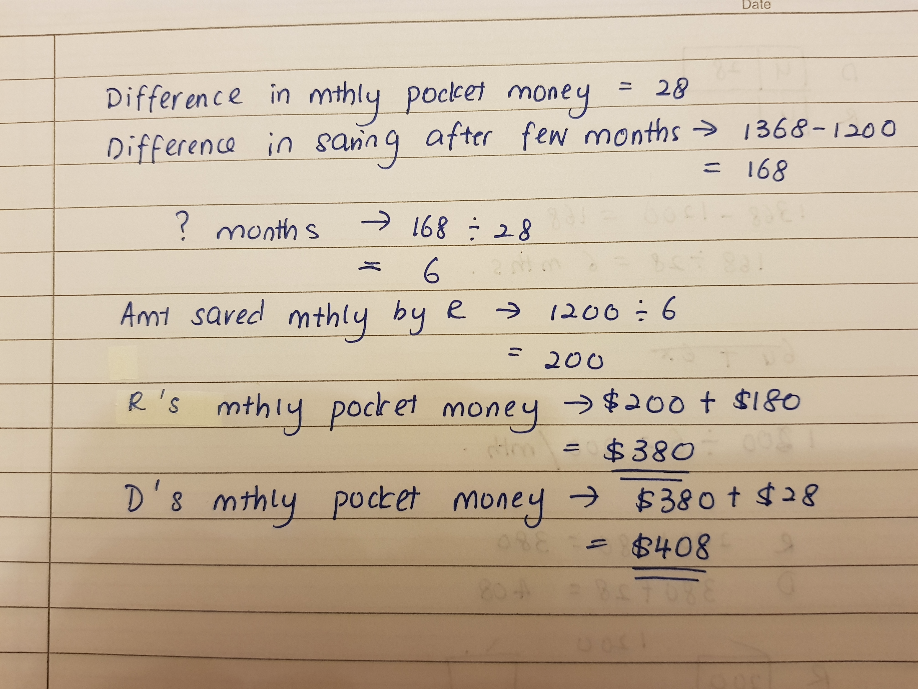 Date
Difference in mthly pocket money = 28
Difference in saving after few months → 1368-1200
= 168
? months → 168 ÷ 28
= 6
Amt saved mthly by R → 1200 ÷ 6
= 200
R's mthly pocket money → $200 + $180
= $380
D's mthly pocket money → $380 + $28
= $408